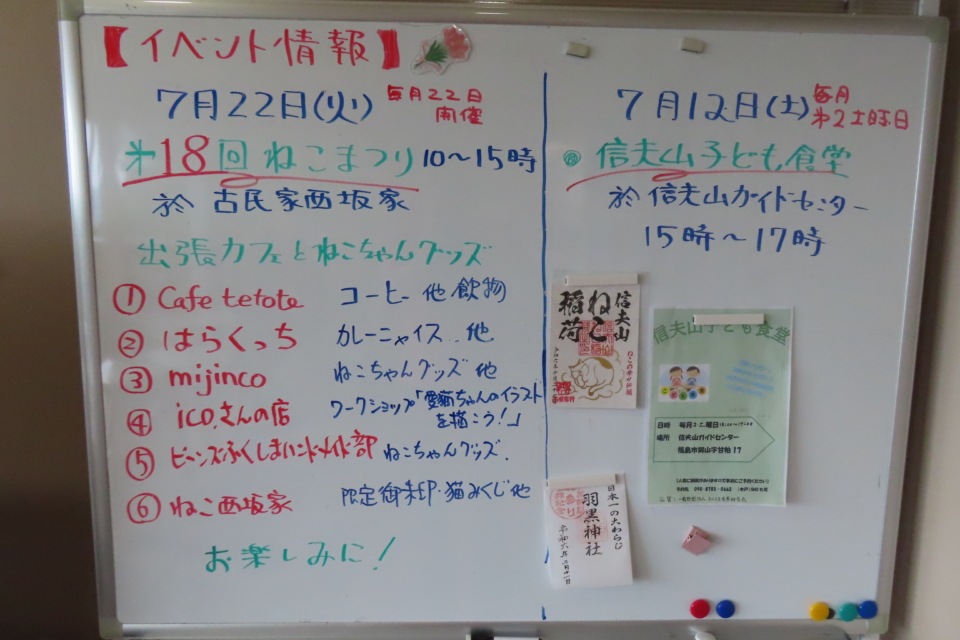 【イベント情報】
7月22日(火) 毎月22日
開催
第18回 ねこまつり 10〜15時
於 古民家西坂家
出張カフェとねこちゃんグッズ
① Cafe tetote コーヒー 他 飲物
② はらくっち カレーニャイス.. 他
③ mijinco ねこちゃんグッズ 他
④ ico.さんの店 ワークショップ「愛猫ちゃんのイラスト
を描こう!」
⑤ ビーンズふくしまハンドメイド部 ねこちゃんグッズ.
⑥ ねこ西坂家 限定御朱印・猫みくじ他
お楽しみに!
7月12日(土) 毎月
第2土曜日
信夫山子ども食堂
於 信夫山ガイドセンター
15時〜17時
信夫山
ねこ
稲荷
信夫山子ども食堂
こども食堂
日時 毎月
場所 信夫山ガイドセンター
福島市御山字甘粕17
日本一の大わらじ
羽黒神社